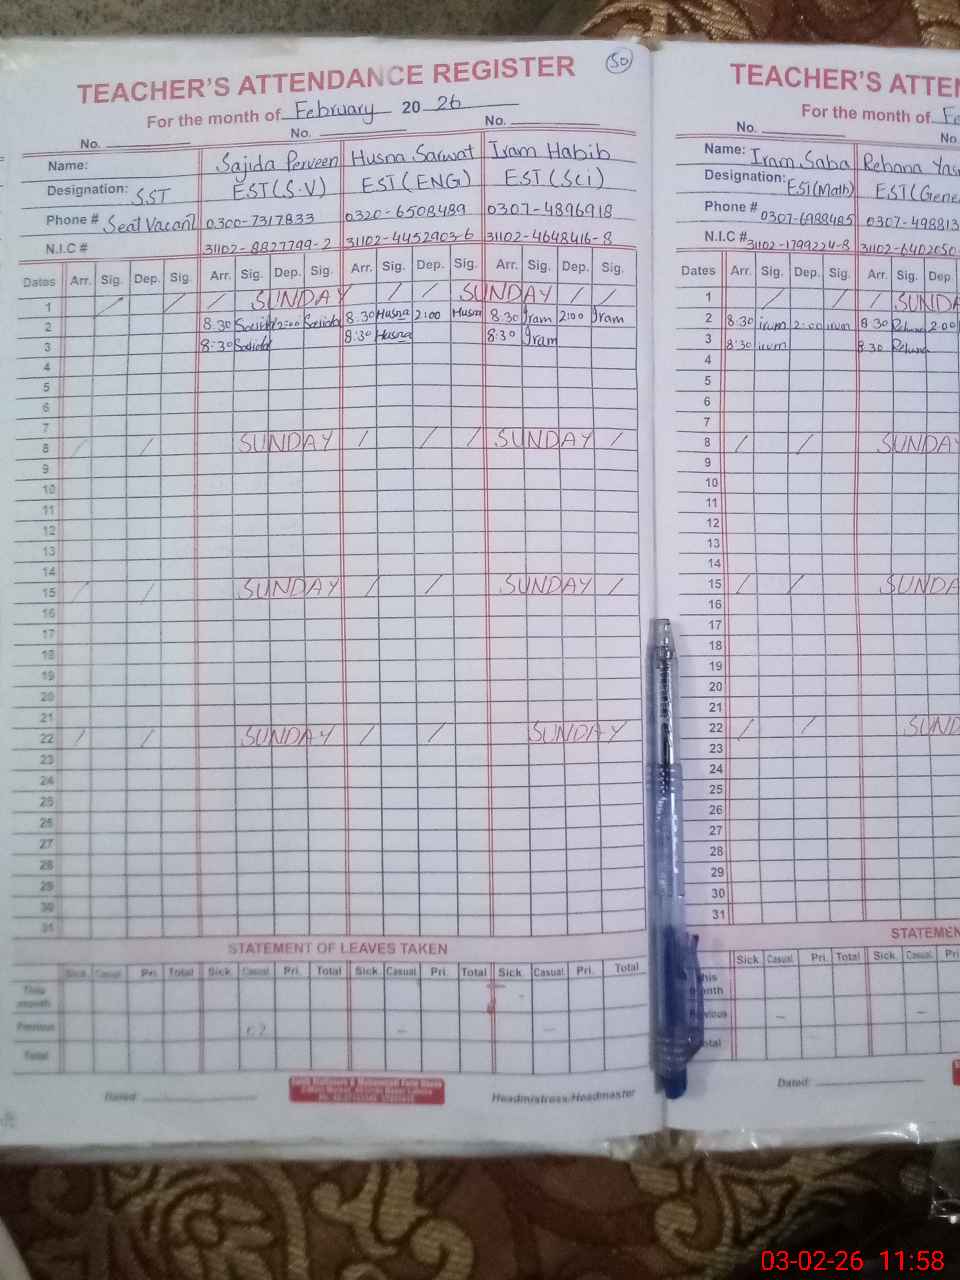 TEACHER'S ATTENDANCE REGISTER
50
For the month of February 2026
No. No. No.
Name: Sajida Perveen Husna Sarwat Iram Habib
Designation: SST EST(S.V) EST(ENG) EST(Sci)
Phone # Seat Vacant 0300-7317833 0320-6508489 0307-4896918
N.I.C # 31102-8827799-2 31102-4452903-6 31102-4648416-8
Dates Arr. Sig. Dep. Sig. Arr. Sig. Dep. Sig. Arr. Sig. Dep. Sig. Arr. Sig. Dep. Sig.
1 / / / SUNDAY / / SUNDAY / /
2 8:30 2:00 8:30 Husna 2:00 Husna 8:30 Iram 2:00 Iram
3 8:30 8:30 Husna 8:30 Iram
4
5
6
7
8 / / SUNDAY / / / SUNDAY /
9
10
11
12
13
14
15 / / SUNDAY / / SUNDAY /
16
17
18
19
20
21
22 / / SUNDAY / / SUNDAY
23
24
25
26
27
28
29
30
31
STATEMENT OF LEAVES TAKEN
Sick Casual Pri. Total Sick. Casual Pri. Total Sick. Casual Pri. Total Sick. Casual. Pri. Total
This month
Previous - -
Total
Dated: Headmistress/Headmaster
TEACHER'S ATTEN
For the month of Fe
No. No
Name: Iram Saba Rehana Yas
Designation: EST(Math) EST(Gene
Phone # 0307-6988485 0307-498813
N.I.C # 31102-1799224-8 31102-6402050
Dates Arr. Sig. Dep. Sig. Arr. Sig. Dep
1 / / / / SUNDA
2 8:30 irum 2:00 irum 8:30 2:00
3 8:30 irum 8:30
4
5
6
7
8 / / SUNDAY
9
10
11
12
13
14
15 / / SUNDA
16
17
18
19
20
21
22 / / SUND
23
24
25
26
27
28
29
30
31
STATEMEN
Sick Casual Pri. Total Sick. Casual Pri
his
onth
vious - -
otal
Dated:
03-02-26 11:58